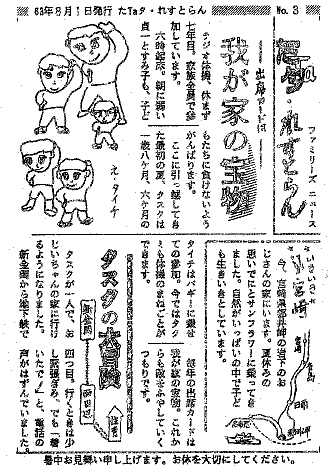 63年8月1日発行 たTaタ・れすとらん No.3
たTaタ・れすとらん
ファミリーズ ニュース
我が家の宝物
出席カード
ラジオ体操、休まず
七年目。家族全員で参
加しています。
時起床。朝に弱い
貞一とすみ子も、子ど
もたちに負けないよう
がんばります。
ここに引っ越してき
た最初の夏、タスクは
一歳八ヶ月、六ヶ月の
え・タイチ
タイチはバギーに乗せ
ての参加。今ではタク
ミも体操のまねごとが
できます。
毎年の出席カードは
我が家の宝物。これか
らも数をふやしていく
つもりです。
いざいざ宮崎
今、宮崎県都井岬の岩下のお
じさんの家にいます。夏休みの
思いでにとサンフラワーに乗ってき
ました。自然がいっぱいの中で子ど
も生き生きとしています。
日南
都井岬
タスクの大冒険
タスクが一人で、お
じいちゃんの家に行け
るようになりました。
新金岡から地下鉄で
四つ目。行くときは少
し緊張ぎみ、でも「着
いたで！」と、電話の
声がはずんでいました。
新金岡
西田辺
暑中お見舞い申し上げます。お体を大切にしてください。